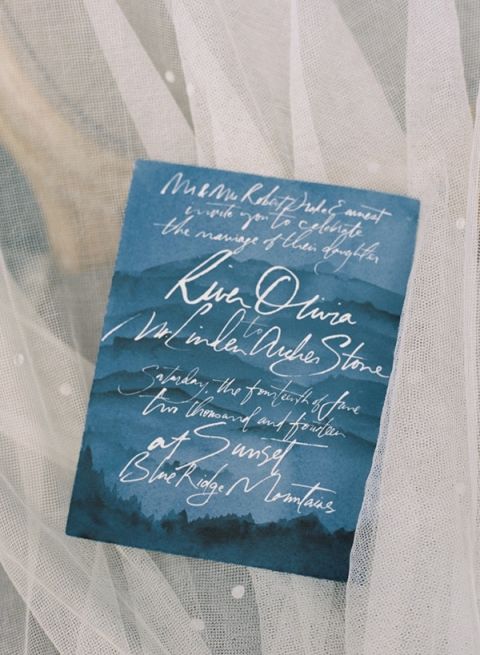 Mr & Mrs Robert Drake Earnest
invite you to celebrate
the marriage of their daughter
River Olivia
to
Mr Linden Archer Stone
Saturday, the fourteenth of June
two thousand and fourteen
at Sunset
Blue Ridge Mountains